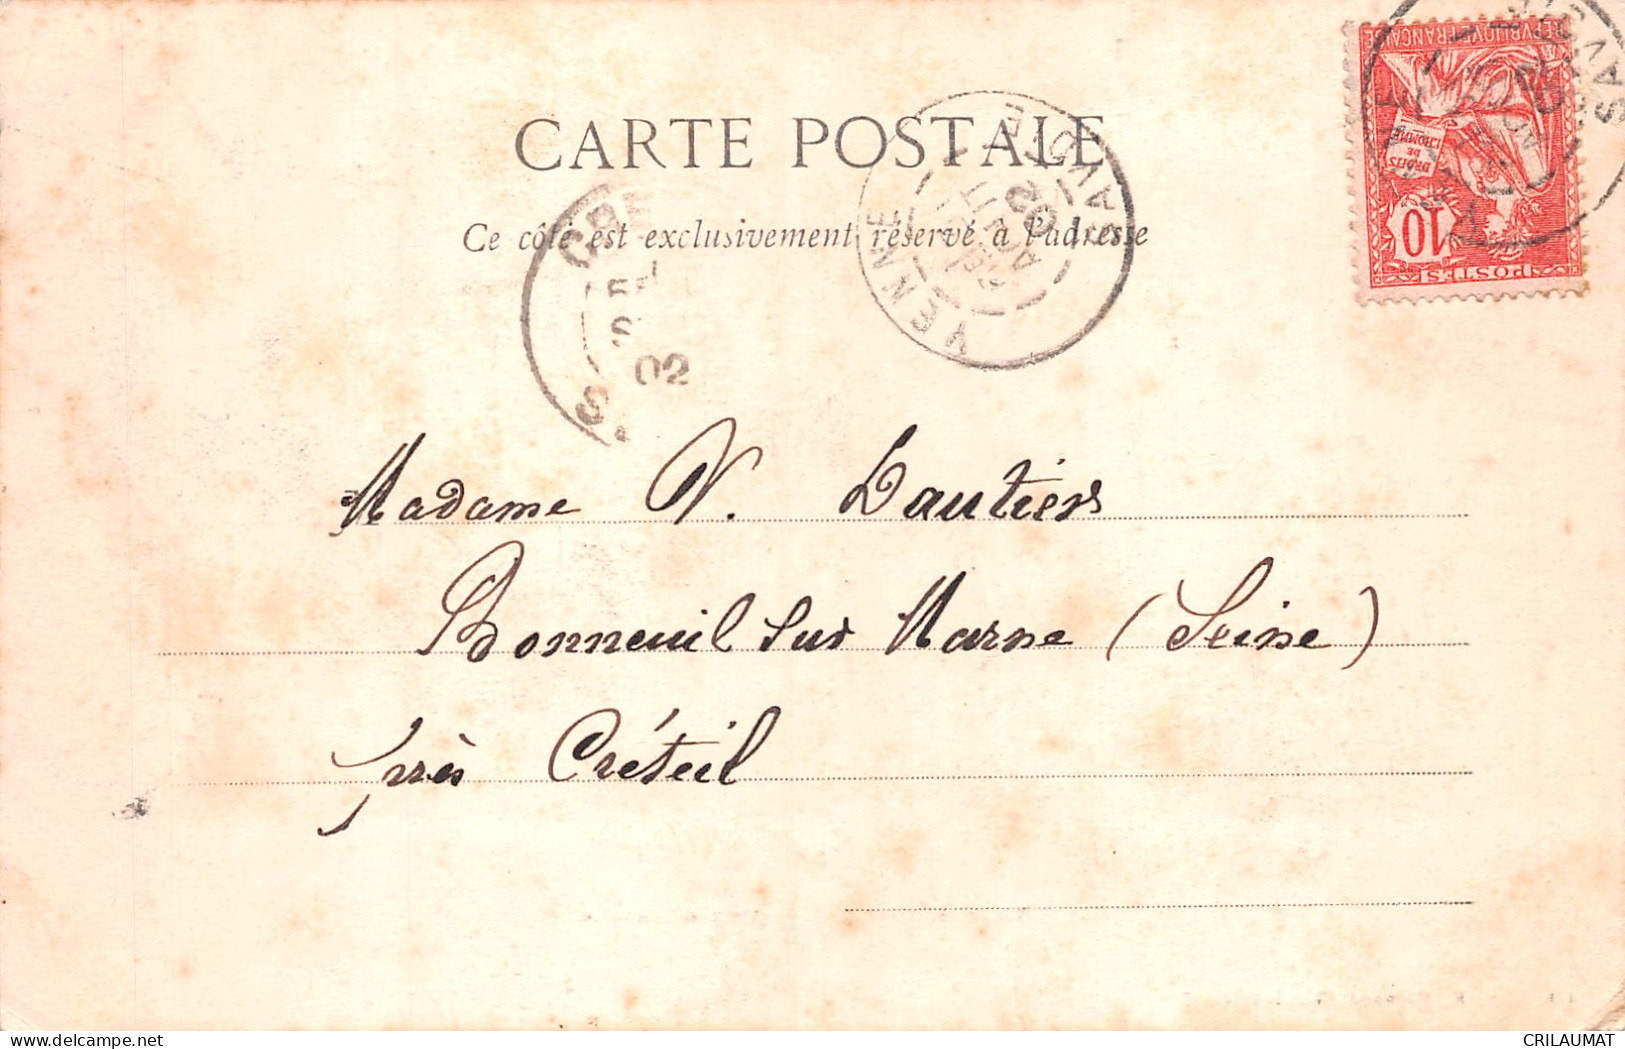 CARTE POSTALE
Ce côté est exclusivement réservé à l'adresse
REPVBLIQVE FRANÇAISE
DROITS
DE
L'HOMME
10
POSTES
02
AOUT
02
Madame V. Dautier
Bonneuil sur Marne (Seine)
près Créteil
CRILAUMAT